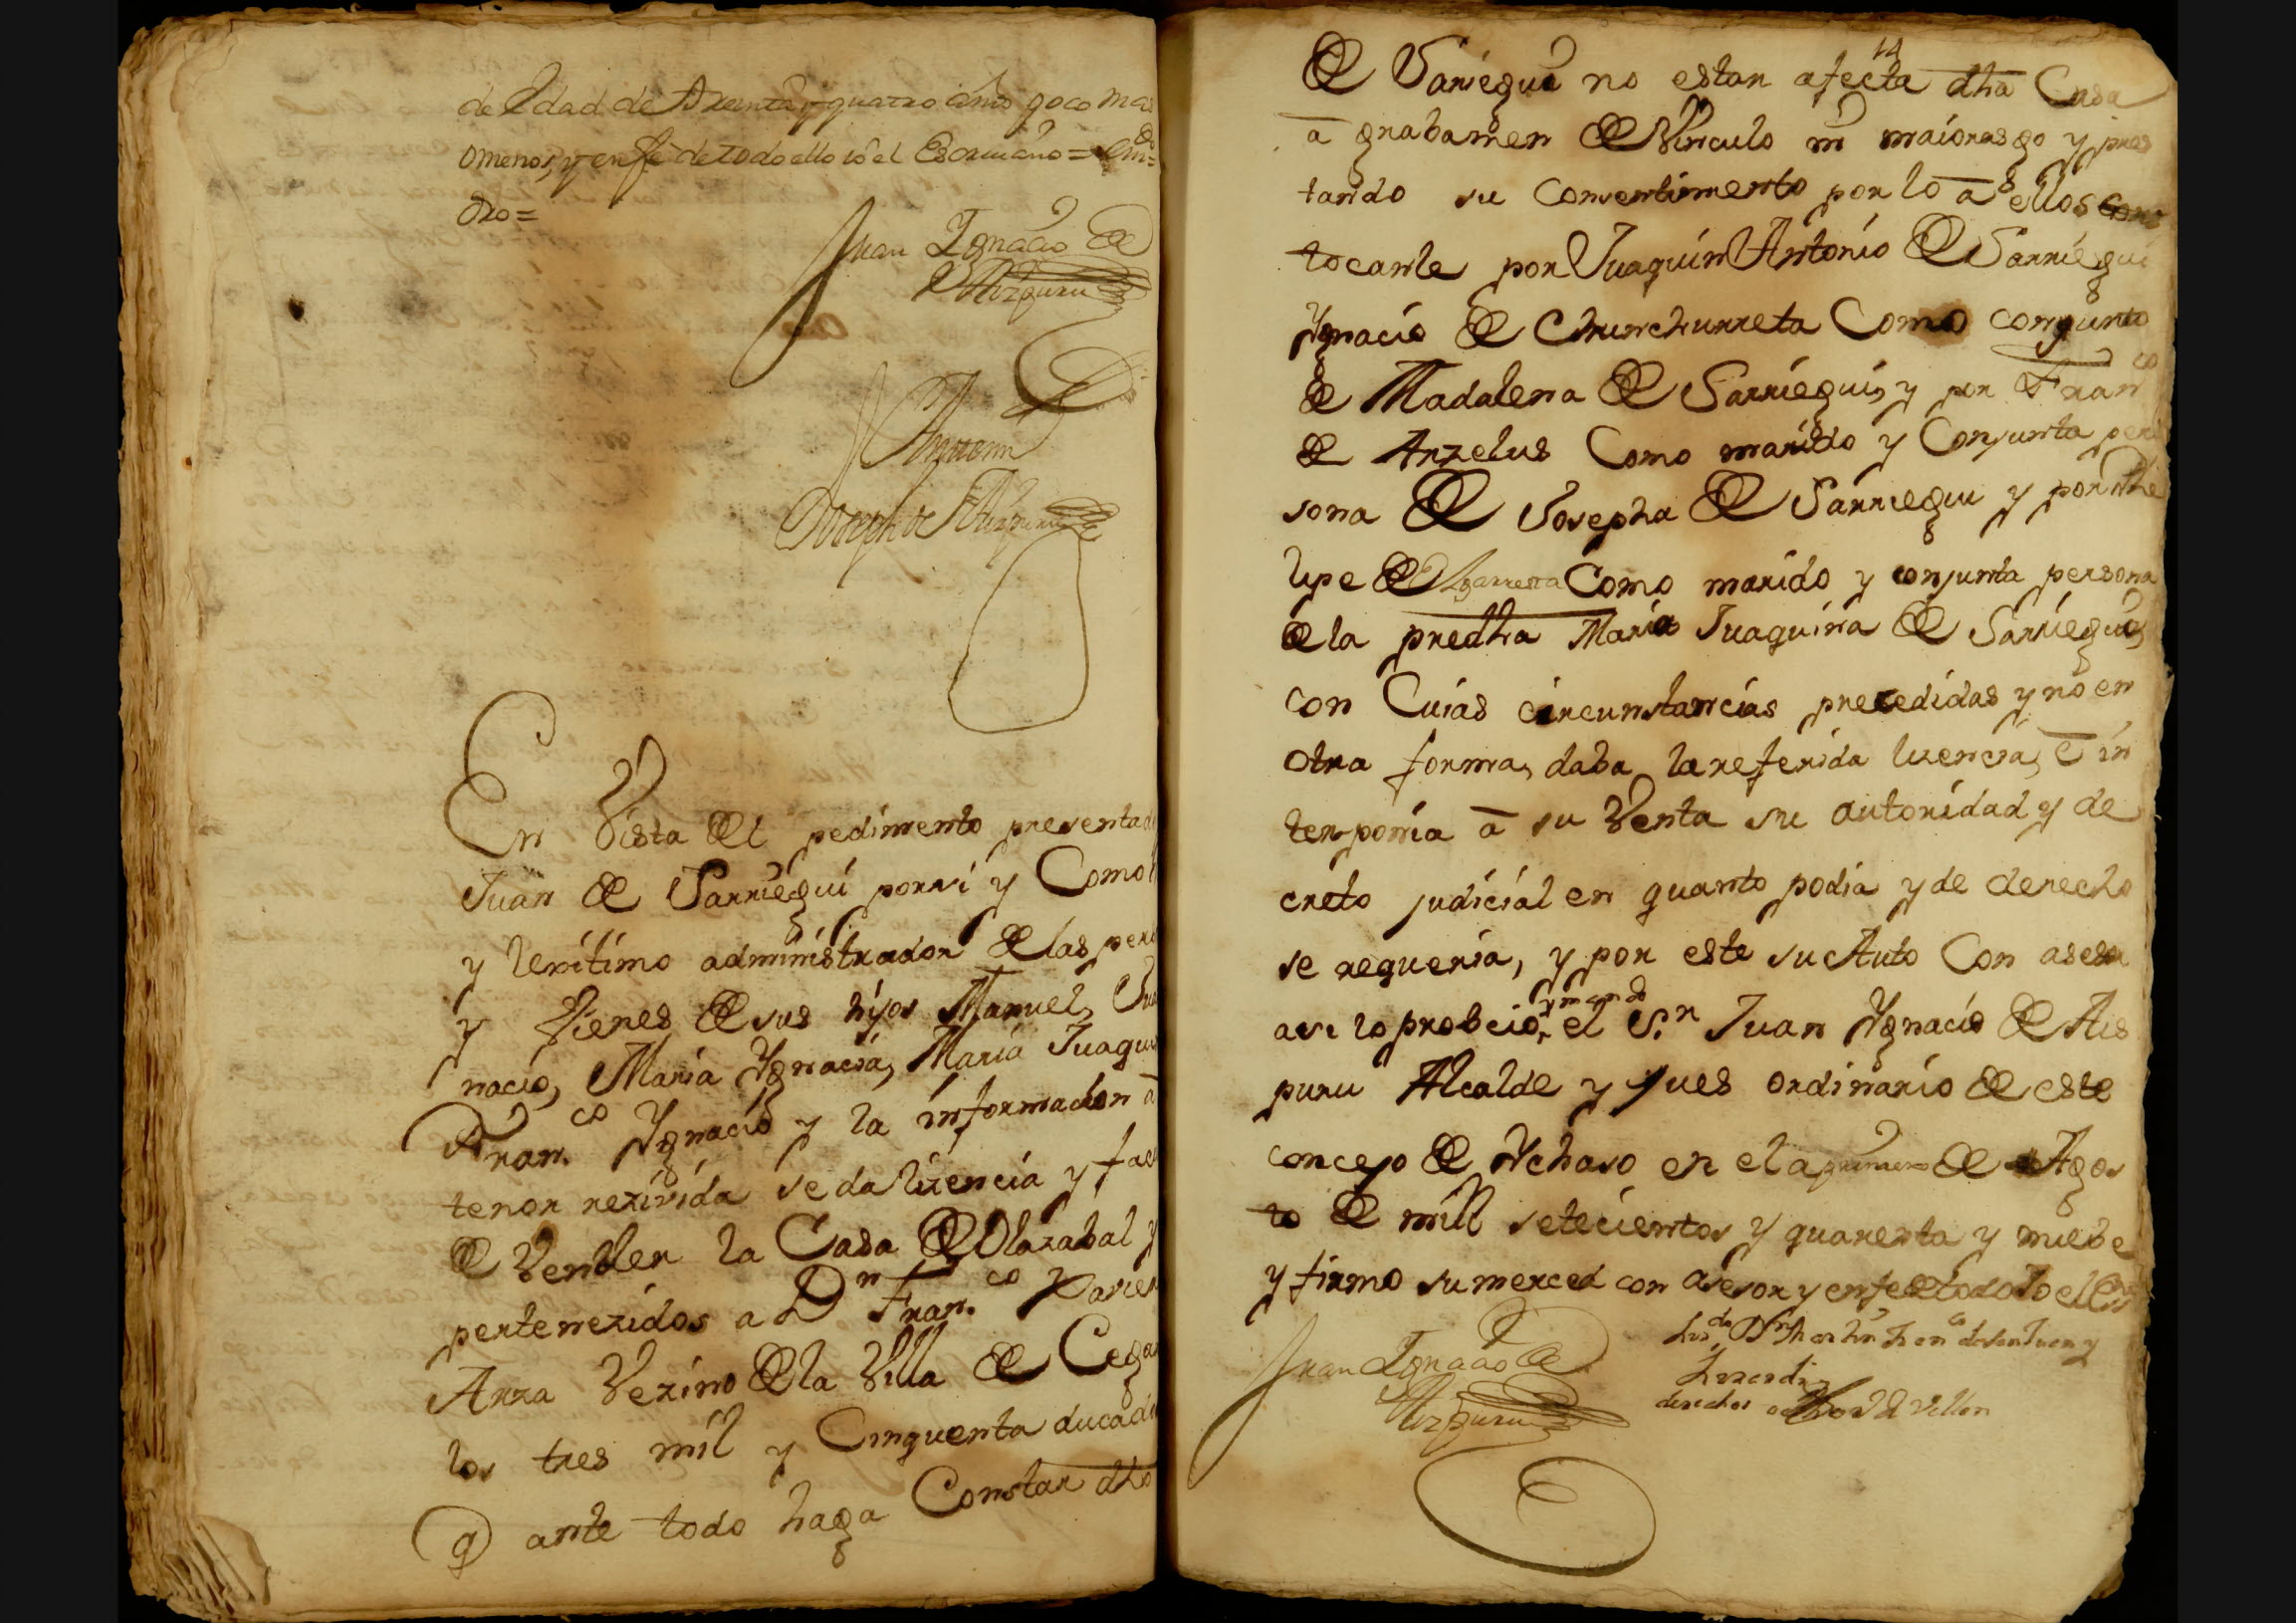 de Edad de treinta y quatro años poco mas
o menos, y en fe de todo ello io el Escriuano = em.do
oro =
Juan Ignacio de
Aizpuru
Ante mi
Joseph de Aizpuru
En Vista del pedimento presentad
Juan de Sarriegui por si y Como l
y lexitimo administrador de las pers
y Vienes de sus hijos Manuel, Jua
nacio, Maria Ygnacia, Maria Juaqui
Fran.co Ygnacio y la informacion a
tenor rezivida se da lizencia y fac
de Vender la Casa de Olazabal y
pertenezidos a Dn Fran.co Xavier
Arza Vezino de la Villa de Cega
los tres mil y Cinquenta ducad
q ante todo haga Constar dho
14
de Sarriegui no estar afecta dha Casa
a grabamen de Vinculo ni maiorasgo y pres
tando su Consentimento por lo a ellos
tocante por Juaquin Antonio de Sarriegui
Ygnacio de Chunchurreta Como conjunto
de Madalena de Sarriegui, y por Fran.co
de Arzelus Como marido y Conjunta per
sona de Josepha de Sarriegui y por Phe
lipe de Lgarreta Como marido y conjunta persona
de la predha Maria Juaquina de Sarriegui,
con Cuias circunstancias precedidas y no en
otra forma, daba la referida lizencia, e in
terponia a su Venta su autoridad y de
creto judicial en quanto podia y de derecho
se requeria, y por este su Auto Con asesor
asi lo probeio, y mando el S.r Juan Ygnacio de Ais
puru Alcalde y Jues ordinario de este
concejo de Ychaso en el a primero de Agos
to de mill setecientos y quarenta y nuebe
y firmo su merced con asesor y en fe de todo Io el Ess.no
Juan Ignacio de
Aizpuru
Liz.do Dn Martin de San Juan y
derechos Vellon